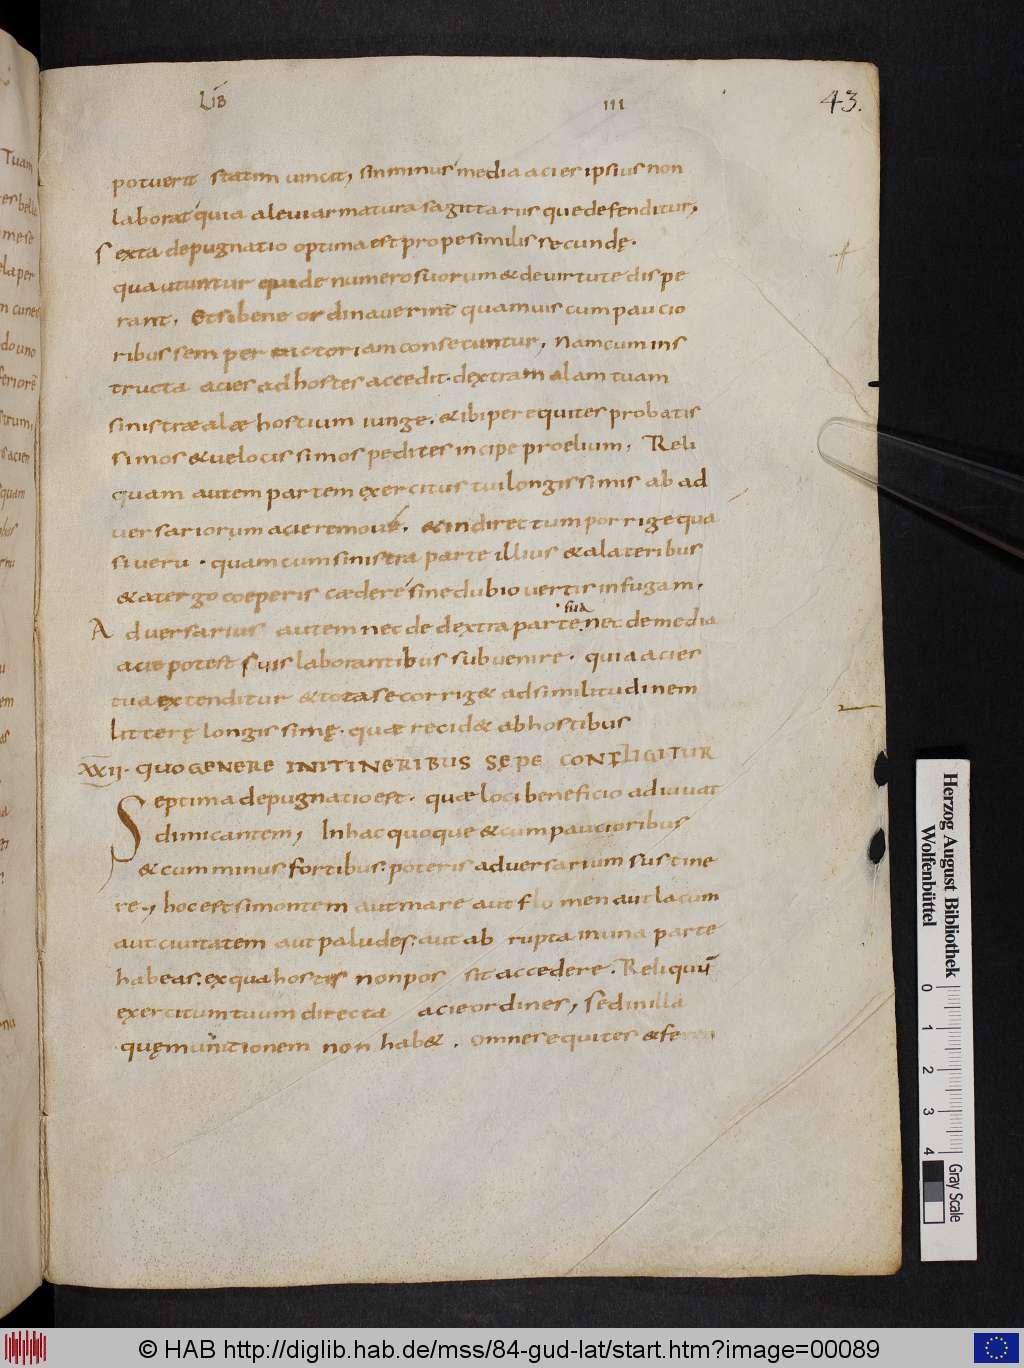 LIB III 43.
potuerit statim uincit, sin minus media acies ipsius non
laborat quia a leui armatura sagittariisque defenditur,
Sexta depugnatio optima est prope similis secundę.
qua utuntur qui de numero suorum & de uirtute dispe
rant. Et si bene ordinauerint quamuis cum paucio
ribus semper uictoriam consecuntur, Nam cum ins
tructa acies ad hostes accedit. dextram alam tuam
sinistrae alae hostium iunge. & ibi per equites probatis
simos & uelocissimos pedites incipe proelium. Reli
quam autem partem exercitus tui longissimis ab ad
uersariorum acie remoué. & in directum porrige qua
si ueru. quam cum sinistra parte illius & a lateribus
& a tergo coeperis caedere sine dubio uertis in fugam.
Aduersarius autem nec de dextra parte sua nec de media
acie potest suis laborantibus subuenire. quia acies
tua extenditur & tota se corrig& ad similitudinem
litterę longissimę. quae recid& ab hostibus
XXII. QUO GENERE IN ITINERIBUS SĘPE CONFLIGITUR
Septima depugnatio est. quae loci beneficio adiuuat
dimicantem, In hac quoque & cum paucioribus
& cum minus fortibus. poteris aduersarium sustine
re, hoc est si montem aut mare aut flomen aut lacum
aut ciuitatem aut paludes. aut abrupta in una parte
habeas. ex qua hostes non possit accedere. Reliquū
exercitum tuum directa acie ordines, sed in illa
quę munitionem non hab&. omnes equites &
Herzog August Bibliothek
Wolfenbüttel
0 1 2 3 4
Gray Scale
© HAB http://diglib.hab.de/mss/84-gud-lat/start.htm?image=00089